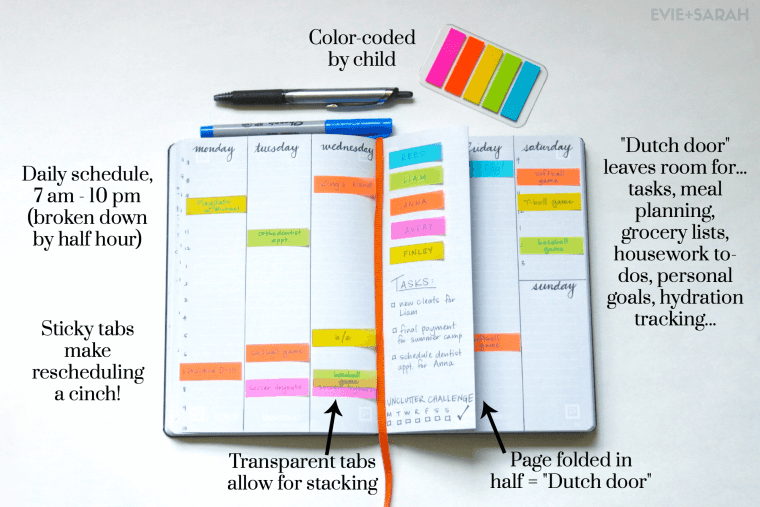 EVIE+SARAH
Color-coded
by child
Daily schedule,
7 am - 10 pm
(broken down
by half hour)
Sticky tabs
make
rescheduling
a cinch!
monday
tuesday
wednesday
orthodontist
appt.
game
soccer
b/a
baseball
game
REED
LIAM
ANNA
AVERY
FINLEY
TASKS:
new cleats for
Liam
final payment
for summer camp
schedule dentist
appt. for Anna
UNCLUTTER CHALLENGE
M T W R F S S
saturday
softball
game
T-ball game
baseball
game
sunday
game
"Dutch door"
leaves room for...
tasks, meal
planning,
grocery lists,
housework to-
dos, personal
goals, hydration
tracking...
Transparent tabs
allow for stacking
Page folded in
half = "Dutch door"